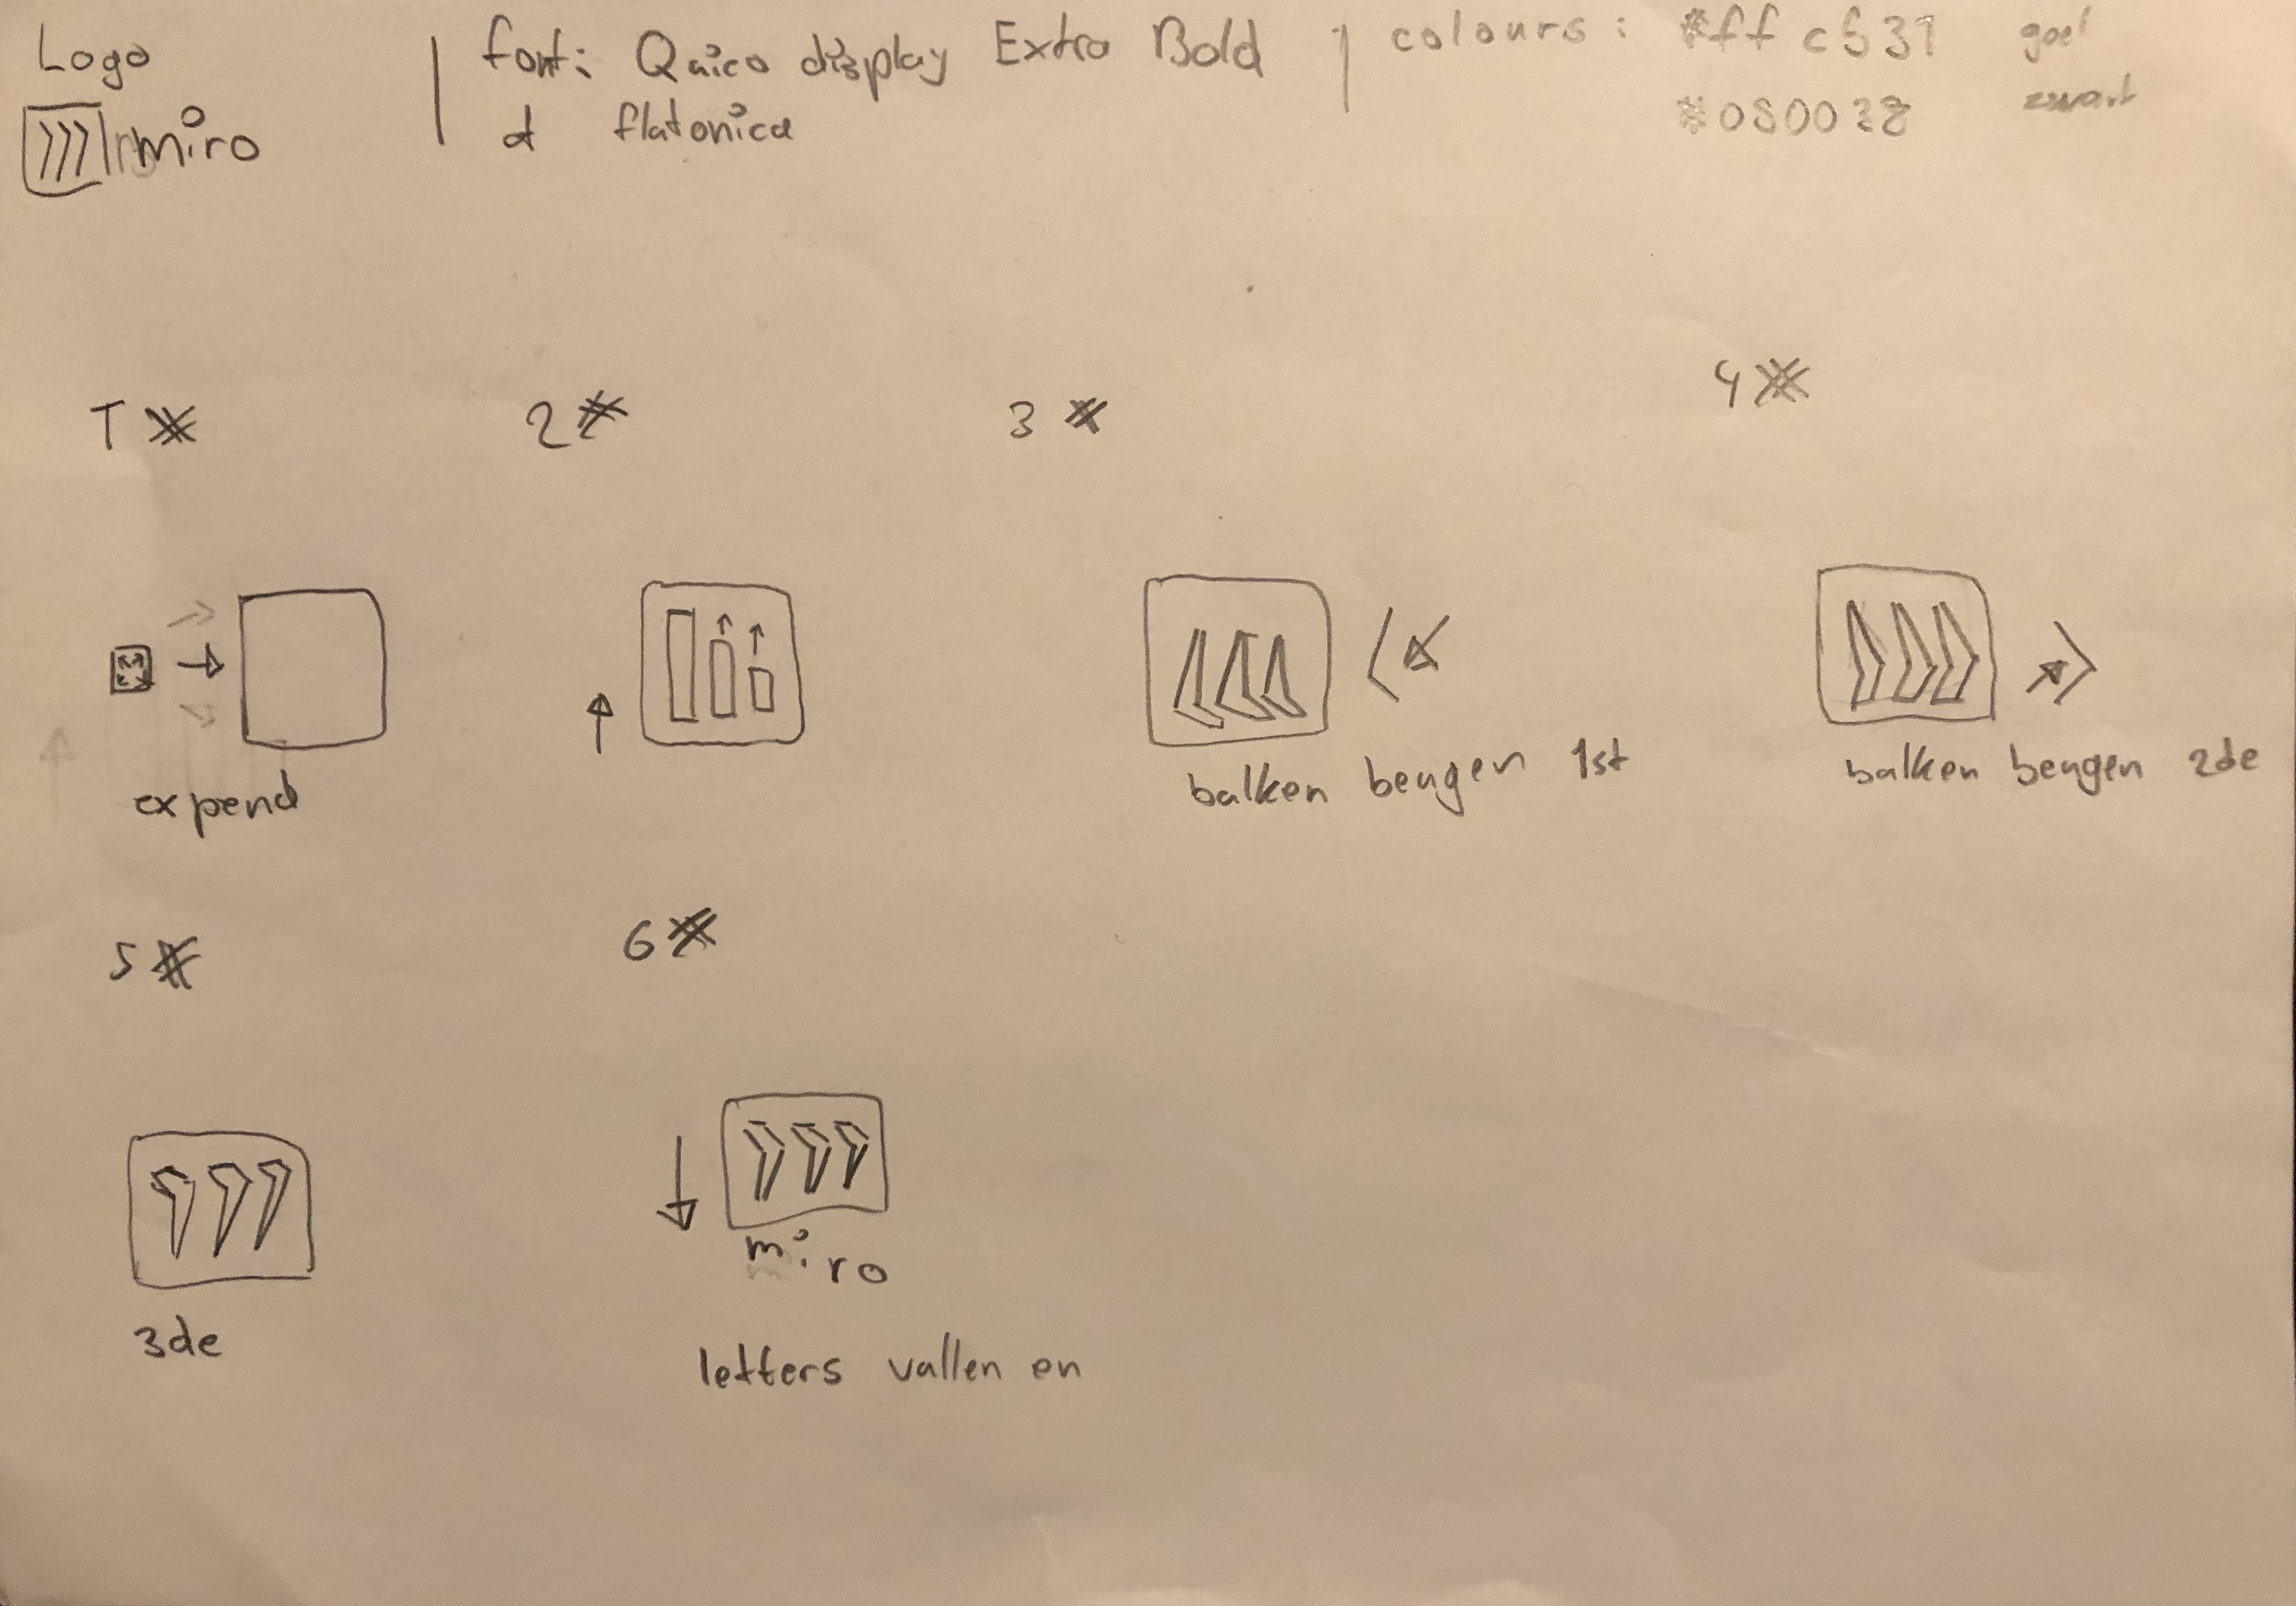 Logo
miro
font: Quico display Extra Bold
& flatonica
colours: #ffc631 geel
#050038 zwart
1
2
3
4
expend
balken beugen 1st
balken beugen 2de
5
6
3de
miro
letters vallen en